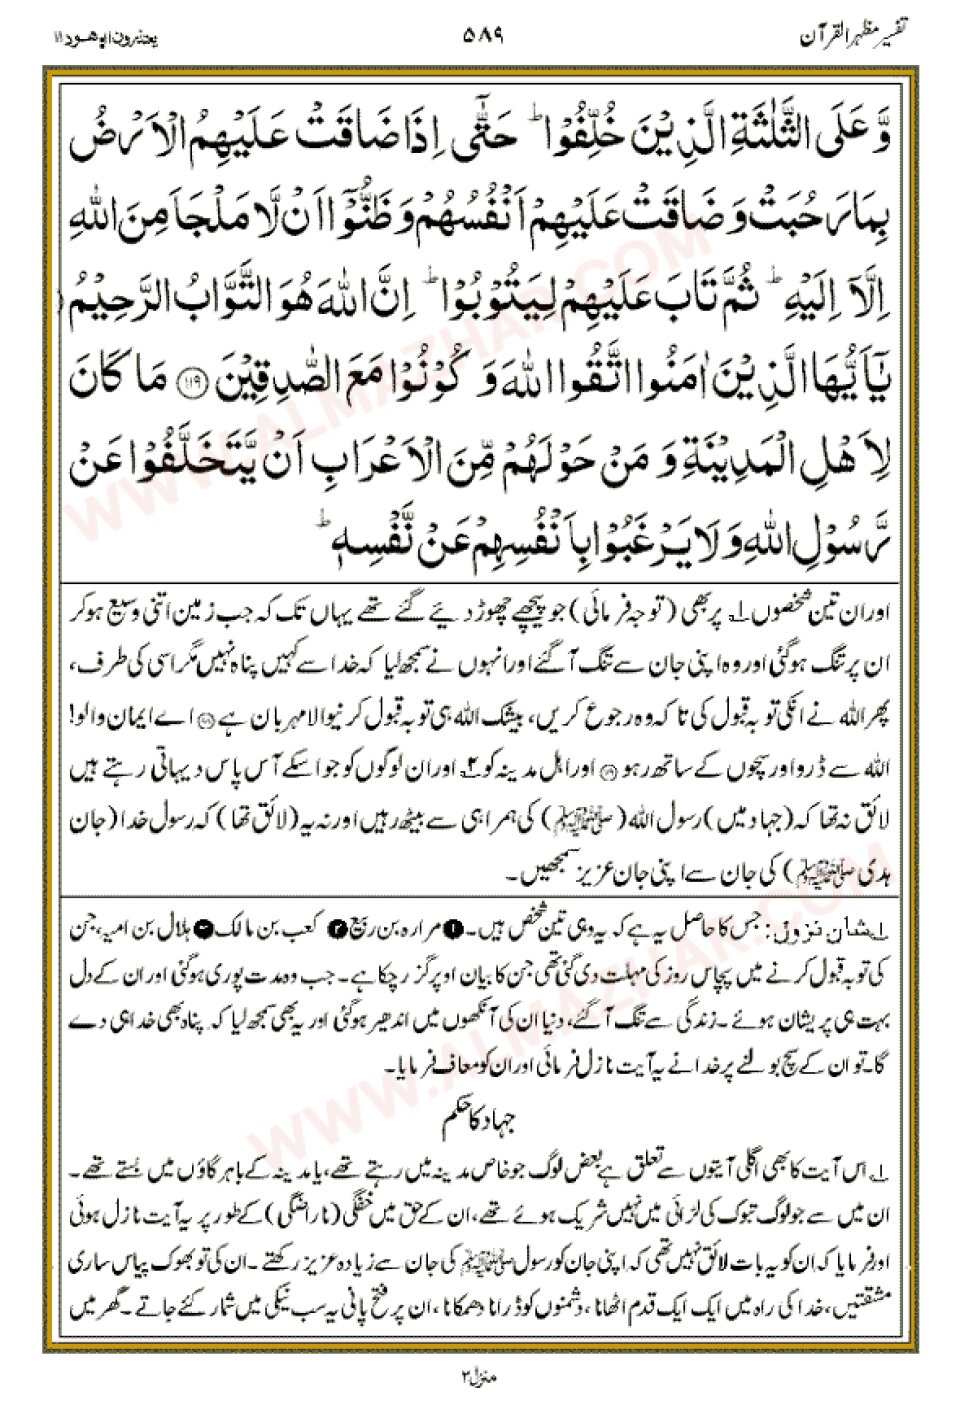 تفسیر مظہر القرآن ۵۸۹ یعتذرون ۱۱ ھود ۱۱
وَّ عَلَى الثَّلٰثَةِ الَّذِیْنَ خُلِّفُوْا ؕ حَتّٰۤى اِذَا ضَاقَتْ عَلَیْهِمُ الْاَرْضُ
بِمَا رَحُبَتْ وَ ضَاقَتْ عَلَیْهِمْ اَنْفُسُهُمْ وَ ظَنُّوْۤا اَنْ لَّا مَلْجَاَ مِنَ اللّٰهِ
اِلَّاۤ اِلَیْهِ ؕ ثُمَّ تَابَ عَلَیْهِمْ لِیَتُوْبُوْا ؕ اِنَّ اللّٰهَ هُوَ التَّوَّابُ الرَّحِیْمُ
یٰۤاَیُّهَا الَّذِیْنَ اٰمَنُوا اتَّقُوا اللّٰهَ وَ كُوْنُوْا مَعَ الصّٰدِقِیْنَ ۱۱۹ مَا كَانَ
لِاَهْلِ الْمَدِیْنَةِ وَ مَنْ حَوْلَهُمْ مِّنَ الْاَعْرَابِ اَنْ یَّتَخَلَّفُوْا عَنْ
رَّسُوْلِ اللّٰهِ وَ لَا یَرْغَبُوْا بِاَنْفُسِهِمْ عَنْ نَّفْسِهٖ ؕ
اور ان تین شخصوں ۱ پر بھی (توجہ فرمائی) جو پیچھے چھوڑ دیئے گئے تھے یہاں تک کہ جب زمین اتنی وسیع ہو کر
ان پر تنگ ہو گئی اور وہ اپنی جان سے تنگ آ گئے اور انہوں نے سمجھ لیا کہ خدا سے کہیں پناہ نہیں مگر اسی کی طرف،
پھر اللہ نے انکی توبہ قبول کی تاکہ وہ رجوع کریں، بیشک اللہ ہی توبہ قبول کرنیوالا مہربان ہے ۱۱۸ اے ایمان والو!
اللہ سے ڈرو اور سچوں کے ساتھ رہو ۱۱۹ اور اہل مدینہ کو ۲ اور ان لوگوں کو جو اسکے آس پاس دیہاتی رہتے ہیں
لائق نہ تھا کہ (جہاد میں) رسول اللہ (ﷺ) کی ہمراہی سے بیٹھ رہیں اور نہ یہ (لائق تھا) کہ رسول خدا (جان
ہدی ﷺ) کی جان سے اپنی جان عزیز سمجھیں۔
۱ شان نزول: جس کا حاصل یہ ہے کہ یہ وہی تین شخص ہیں۔ ۱ مرارہ بن ربیع ۲ کعب بن مالک ۳ ہلال بن امیہ، جن
کی توبہ قبول کرنے میں پچاس روز کی مہلت دی گئی تھی جن کا بیان اوپر گزر چکا ہے۔ جب وہ مدت پوری ہو گئی اور ان کے دل
بہت ہی پریشان ہوئے۔ زندگی سے تنگ آ گئے، دنیا ان کی آنکھوں میں اندھیر ہو گئی اور یہ بھی سمجھ لیا کہ پناہ بھی خدا ہی دے
گا۔ تو ان کے سچ بولنے پر خدا نے یہ آیت نازل فرمائی اور ان کو معاف فرمایا۔
جہاد کا حکم
۱ اس آیت کا بھی اگلی آیتوں سے تعلق ہے بعض لوگ جو خاص مدینہ میں رہتے تھے، یا مدینہ کے باہر گاؤں میں بستے تھے۔
ان میں سے جو لوگ تبوک کی لڑائی میں نہیں شریک ہوئے تھے، ان کے حق میں خفگی (ناراضگی) کے طور پر یہ آیت نازل ہوئی
اور فرمایا کہ ان کو یہ بات لائق نہیں تھی کہ اپنی جان کو رسول ﷺ کی جان سے زیادہ عزیز رکھتے۔ ان کی تو بھوک پیاس ساری
مشقتیں، خدا کی راہ میں ایک ایک قدم اٹھانا، دشمنوں کو ڈرانا دھمکانا، ان پر فتح پانی یہ سب نیکی میں شمار کئے جاتے۔ گھر میں
منزل ۲
WWW.ALMAZHAR.COM
WWW.ALMAZHAR.COM